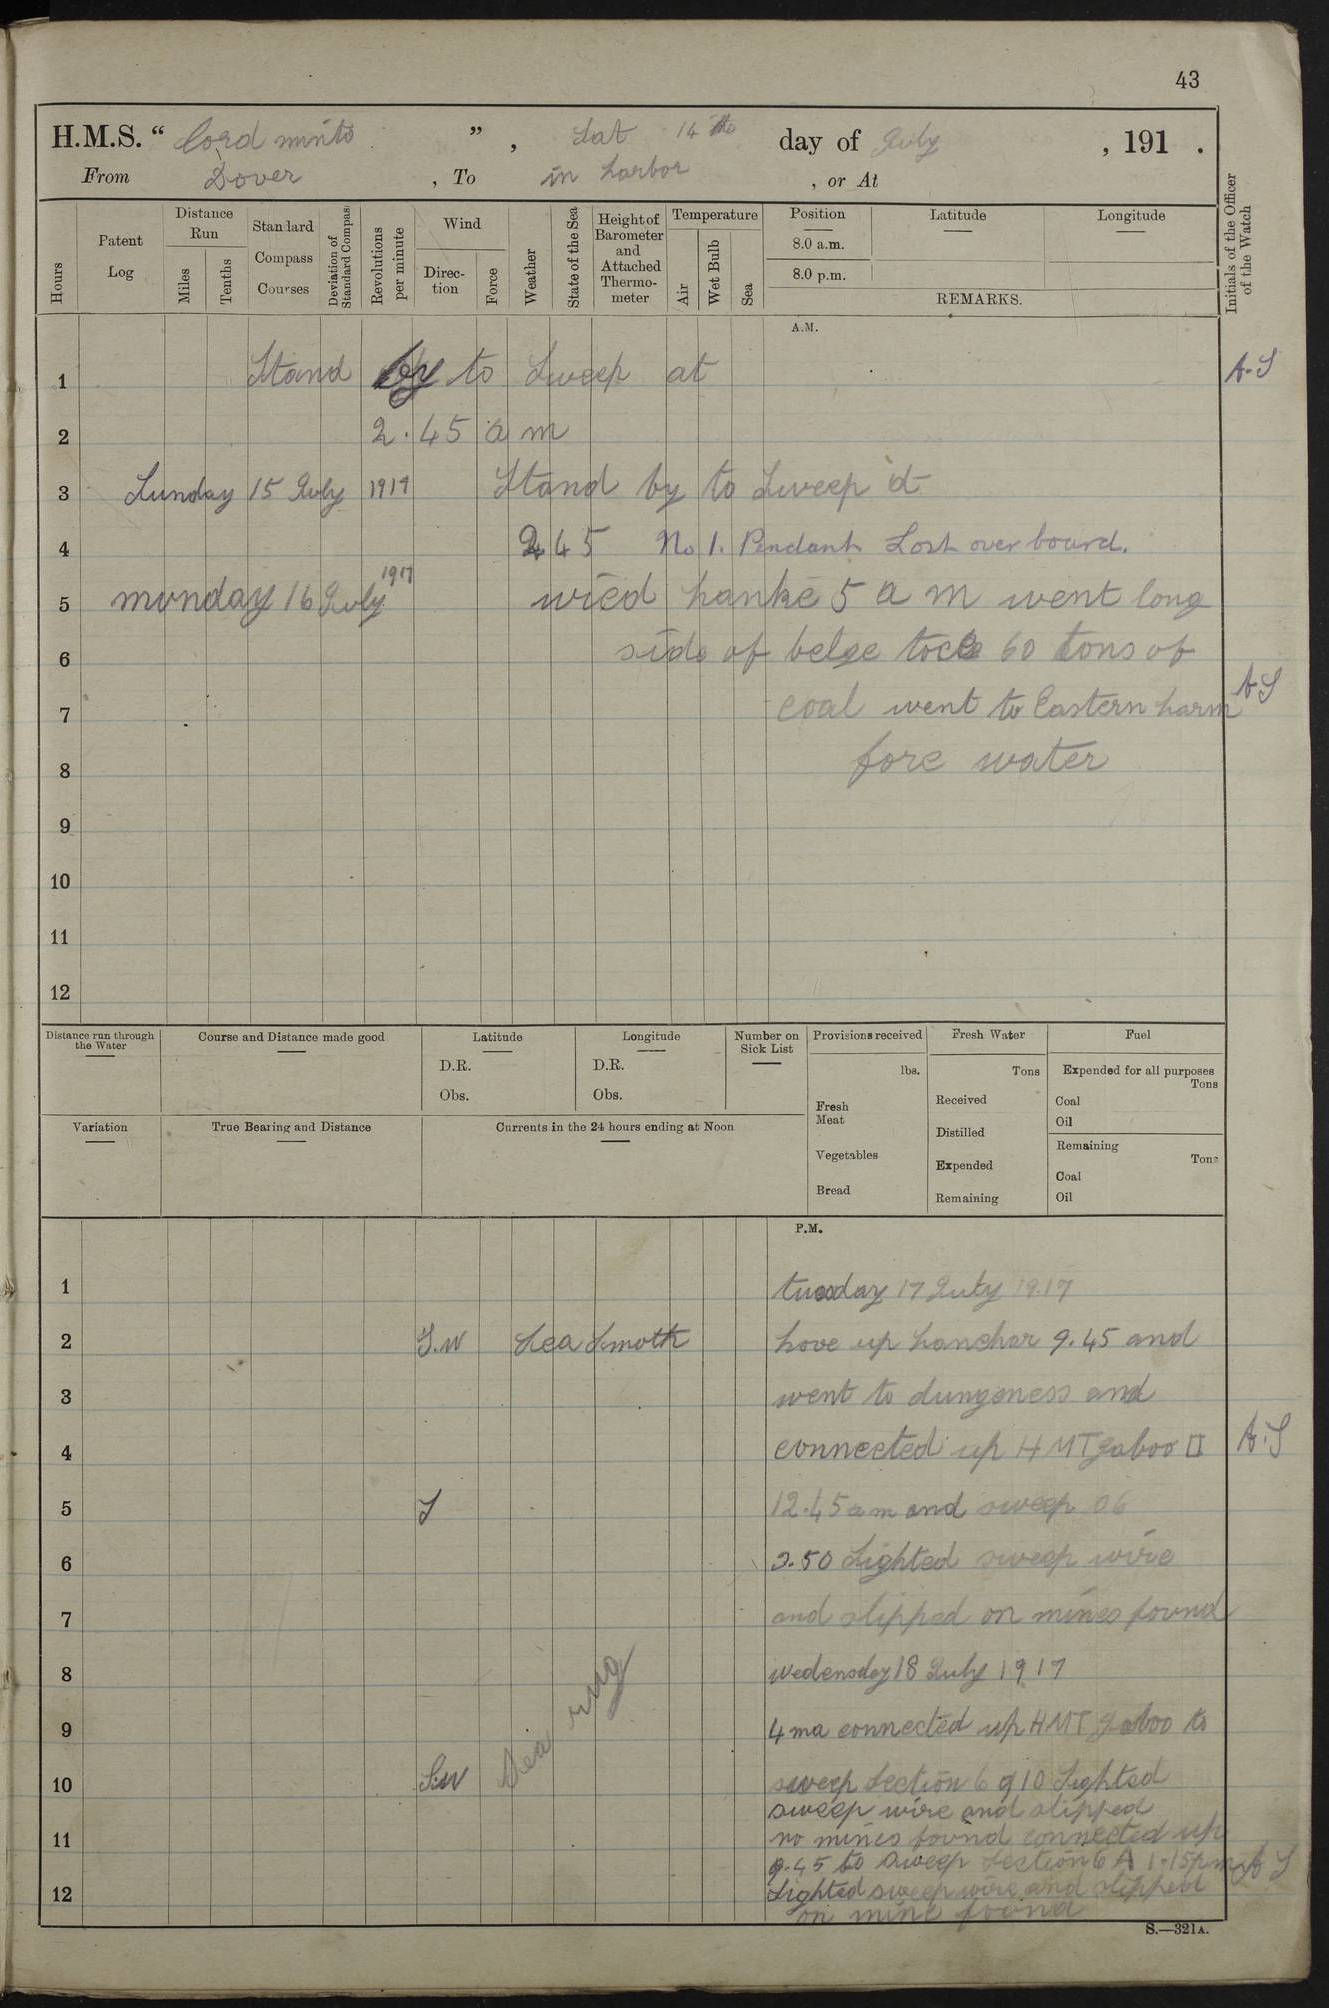 43
H.M.S. “ Lord minto ” , Sat 14 th day of July , 191 .
From Dover , To in harbor , or At
Hours
Patent Log
Distance Run
Miles
Tenths
Standard Compass Courses
Deviation of Standard Compass
Revolutions per minute
Wind
Direction
Force
Weather
State of the Sea
Height of Barometer and Attached Thermometer
Temperature
Air
Wet Bulb
Sea
Position
8.0 a.m.
8.0 p.m.
Latitude
Longitude
REMARKS.
Initials of the Officer of the Watch
A.M.
1 Stand by to Sweep at A.S
2 2.45 a m
3 Sunday 15 July 1917 Stand by to Sweep at
4 245 No 1. Pendant Lost over board.
5 monday 16 July 1917 wied hanke 5 a m went long
6 side of belge tock 60 tons of
7 coal went to Eastern harm A S
8 fore water
9
10
11
12
Distance run through the Water
Course and Distance made good
Latitude
D.R.
Obs.
Longitude
D.R.
Obs.
Number on Sick List
Provisions received
lbs.
Fresh Meat
Vegetables
Bread
Fresh Water
Tons
Received
Distilled
Expended
Remaining
Fuel
Expended for all purposes
Tons
Coal
Oil
Remaining
Tons
Coal
Oil
Variation
True Bearing and Distance
Currents in the 24 hours ending at Noon
P.M.
1 tuesday 17 July 1917
2 S.W Sea Smoth hove up hanchor 9.45 and
3 went to dungeness and
4 connected up H MT gaboo II A.S
5 S 12.45 am and sweep 06
6 3.50 Sighted sweep wire
7 and slipped on mines found
8 wedensday 18 July 1917
9 4 ma connected up HMT gaboo to
Sea rug
10 S.W sweep Section 6 g 10 Sighted
sweep wire and slipped
11 no mines found connected up
9.45 to sweep Section 6 A 1.15 pm A S
12 Sighted sweep wire and slipped
on mine found
S.—321A.